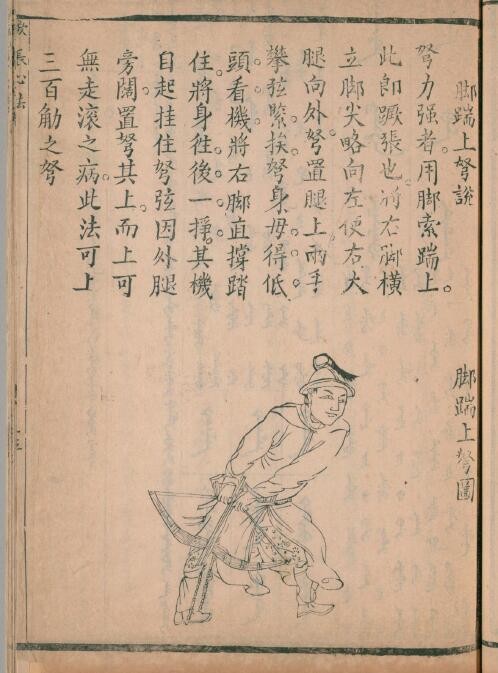 脚踹上弩説
弩力强者用脚索踹上
此即蹶張也將右脚橫
立脚尖略向左使右大
腿向外弩置腿上兩手
攀弦緊挨弩身毋得低
頭看機將右脚直撑踏
住將身徃後一掙其機
自起挂住弩弦因外腿
旁闊置弩其上而上可
無走滚之病此法可上
三百觔之弩
脚踹上弩圖
張心法